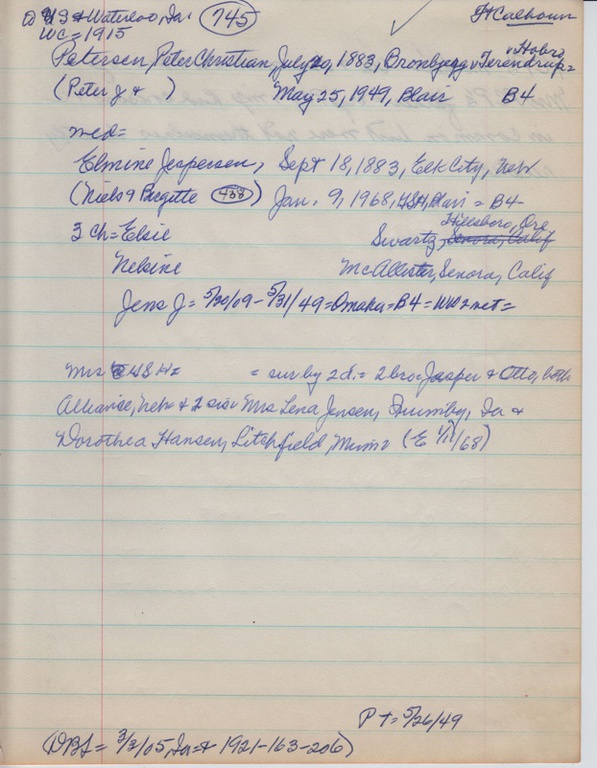 US & Waterloo, Ia. 745 Ft Calhoun
WC = 1915
Petersen, Peter Christian, July 20, 1883, Bronbjerg, Terendrup, Hobro
(Peter J & ) May 25, 1949, Blair B4
med=
Elmine Jespersen, Sept 18, 1883, Elk City, Nebr
(Niels & Birgitte 438) Jan. 9, 1968, Blair = B4
3 Ch = Elsie Swartz, Senora, Calif Hillsboro, Ore
Nelsine McAllister, Senora, Calif
Jens J = 5/30/09 - 5/31/49 = Omaha = B4 = WW2 net =
Mrs 48 H = = sur by 2 d. = 2 bro = Jasper & Otto, both
Alliance, Nebr & 2 sis = Mrs Lena Jensen, Brumby, Ia &
Dorothea Hansen, Litchfield, Minn (E 1/11/68)
PT = 5/26/49
(DBL = 3/3/05, Ia = & 1921-163-206)